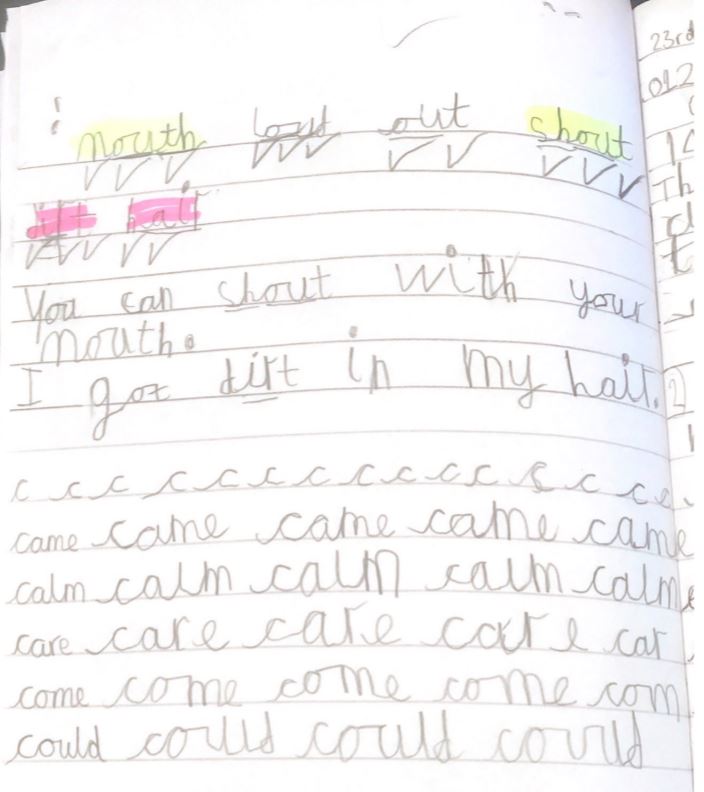 mouth loud out shout
dirt hair
You can shout with your
mouth.
I got dirt in my hair.
c c c c c c c c c c c c c c
came came came came came
calm calm calm calm calm
care care care care car
come come come come com
could could could could
23rd
012
Th